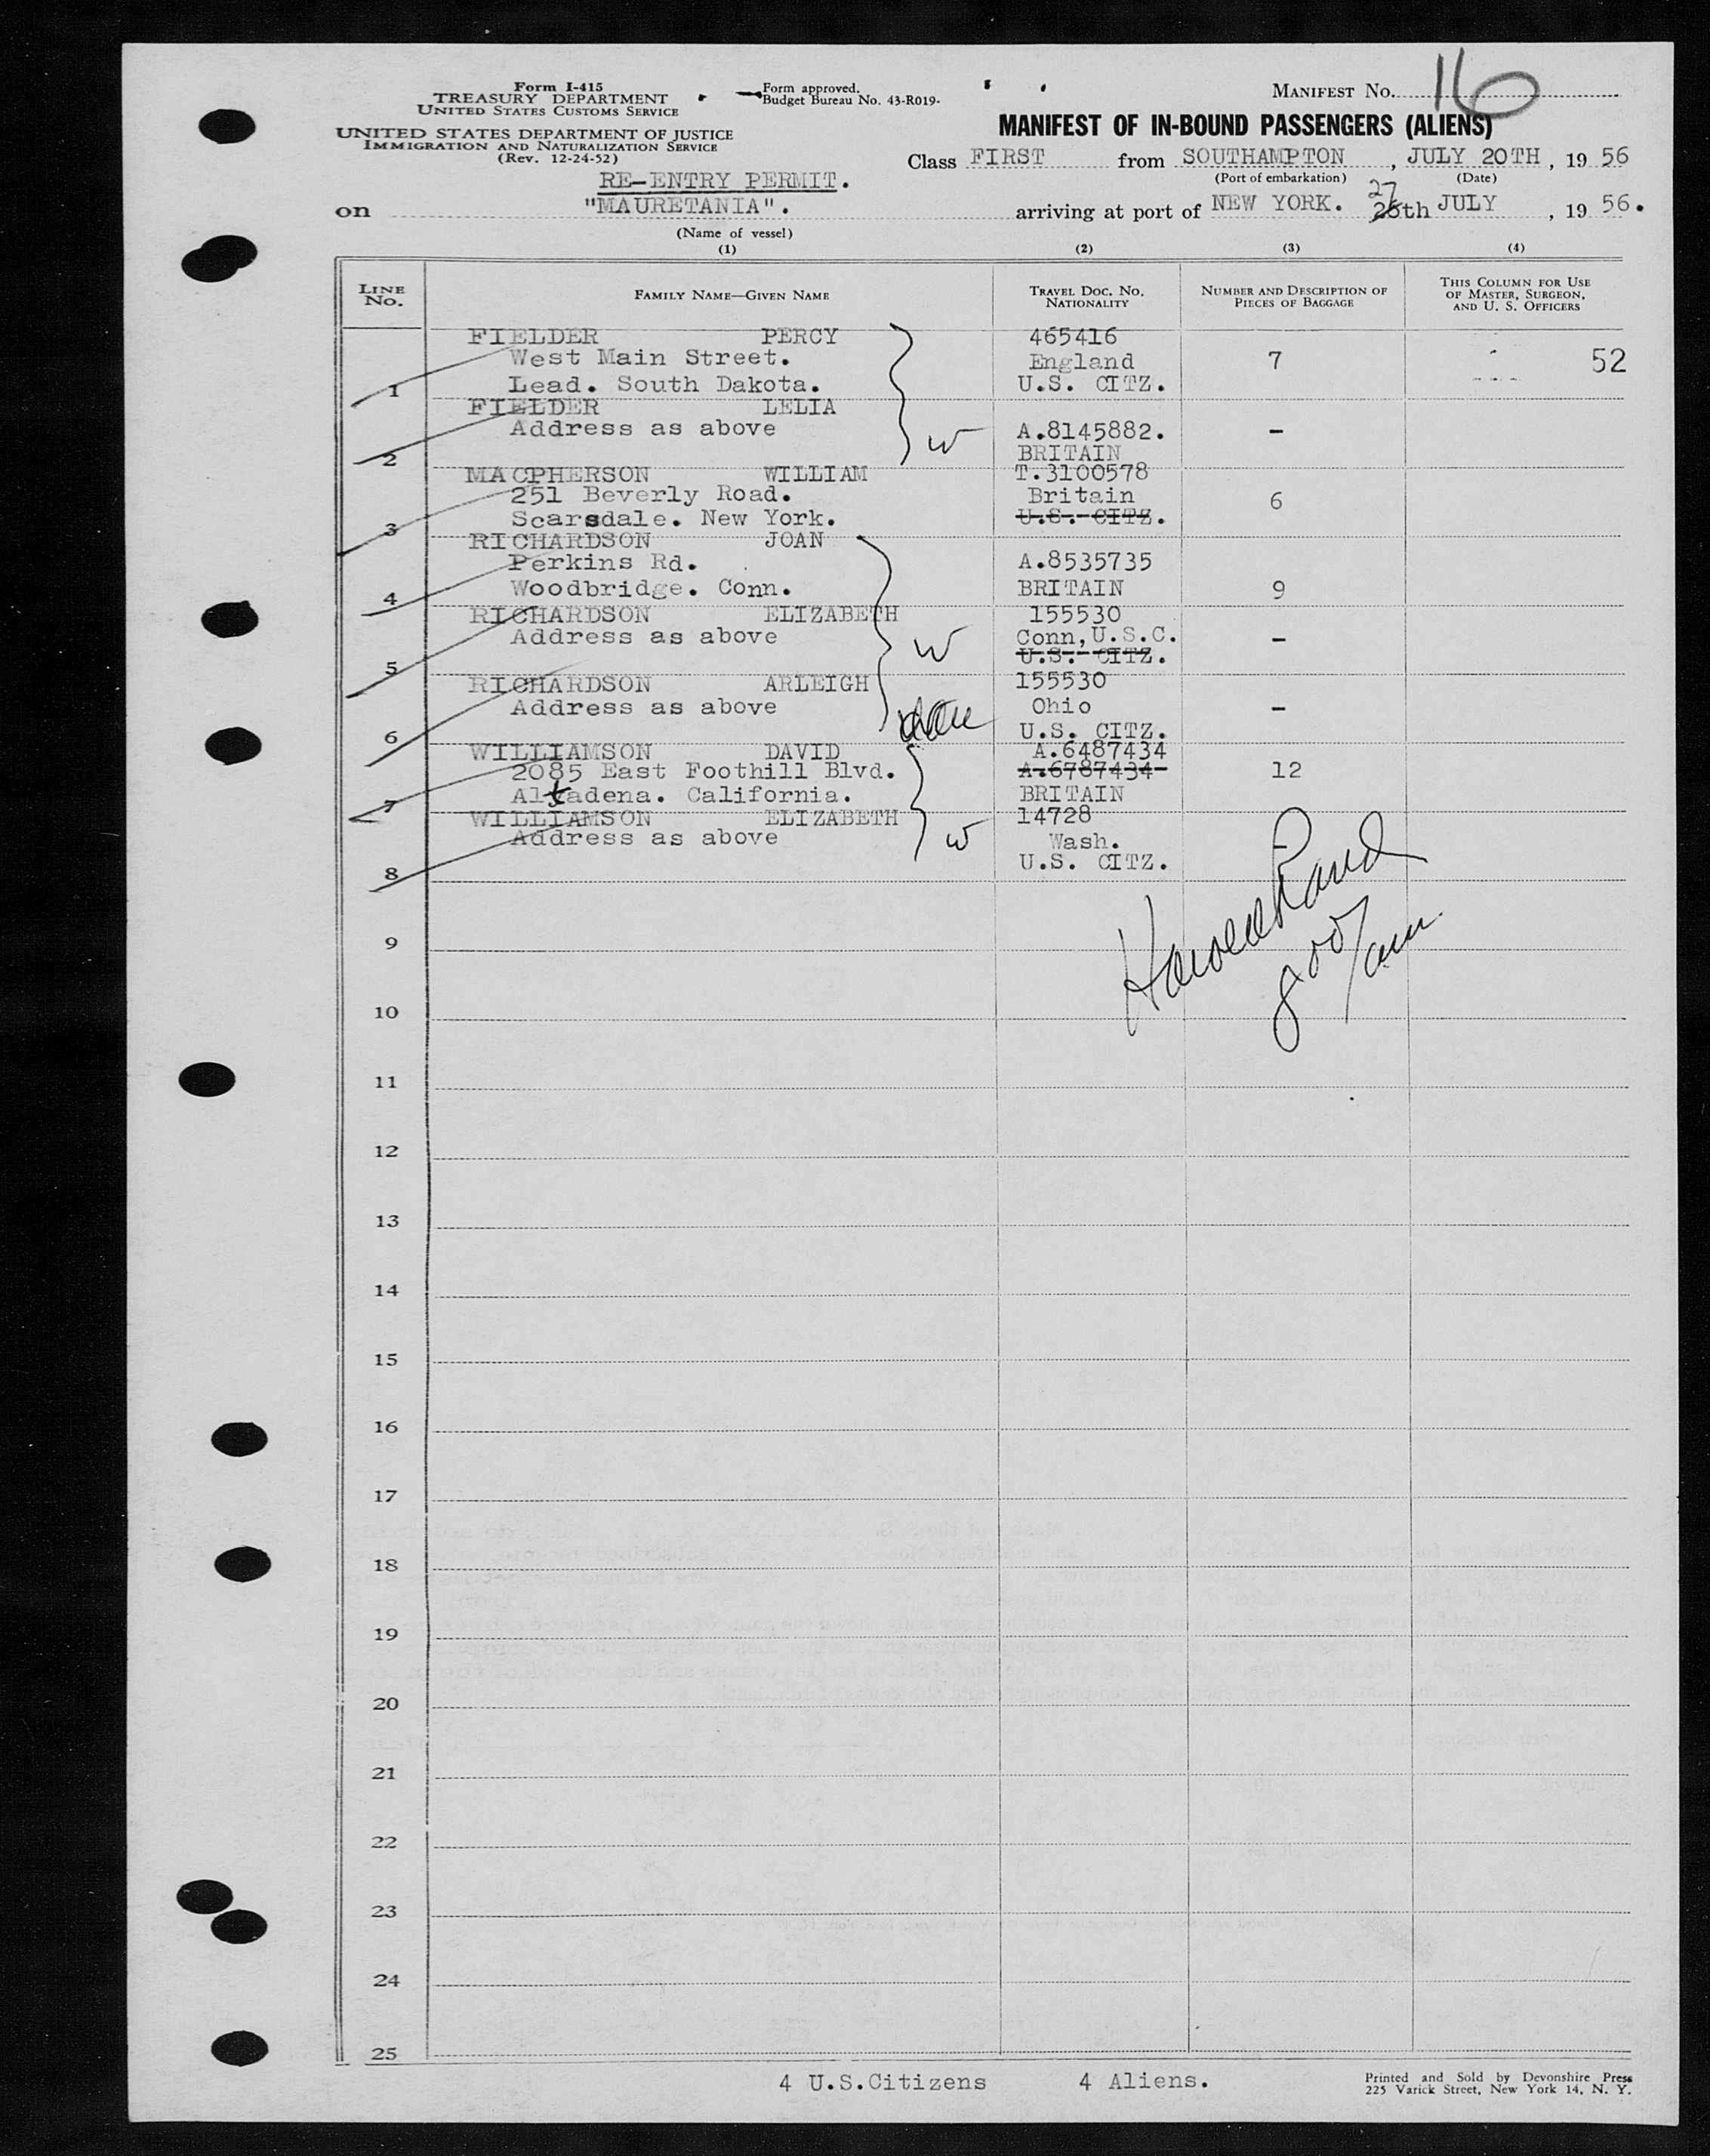 Form I-415
TREASURY DEPARTMENT
UNITED STATES CUSTOMS SERVICE
UNITED STATES DEPARTMENT OF JUSTICE
IMMIGRATION AND NATURALIZATION SERVICE
(Rev. 12-24-52)
Form approved.
Budget Bureau No. 43-R019-
MANIFEST No. 16
MANIFEST OF IN-BOUND PASSENGERS (ALIENS)
Class FIRST from SOUTHAMPTON, JULY 20TH, 19 56
(Port of embarkation) (Date)
RE-ENTRY PERMIT.
on "MAURETANIA". arriving at port of NEW YORK. 27 26th JULY, 19 56.
(Name of vessel)
(1) (2) (3) (4)
LINE No. FAMILY NAME—GIVEN NAME TRAVEL DOC. NO. NATIONALITY NUMBER AND DESCRIPTION OF PIECES OF BAGGAGE THIS COLUMN FOR USE OF MASTER, SURGEON, AND U. S. OFFICERS
FIELDER PERCY 465416
West Main Street. England 7 52
1 Lead. South Dakota. U.S. CITZ.
FIELDER LELIA
Address as above A.8145882. -
2 W BRITAIN
MACPHERSON WILLIAM T.3100578
251 Beverly Road. Britain 6
3 Scarsdale. New York. U.S. CITZ.
RICHARDSON JOAN
Perkins Rd. A.8535735
4 Woodbridge. Conn. BRITAIN 9
RICHARDSON ELIZABETH 155530
Address as above W Conn, U.S.C. -
5 U.S. CITZ.
RICHARDSON ARLEIGH 155530
Address as above Ohio -
6 U.S. CITZ.
WILLIAMSON DAVID A.6487434
2085 East Foothill Blvd. A.6787434 12
7 Altadena. California. BRITAIN
WILLIAMSON ELIZABETH 14728
Address as above W Wash.
8 U.S. CITZ.
Rand
8 00/am
9
10
11
12
13
14
15
16
17
18
19
20
21
22
23
24
25
4 U.S.Citizens 4 Aliens.
Printed and Sold by Devonshire Press
225 Varick Street, New York 14, N. Y.